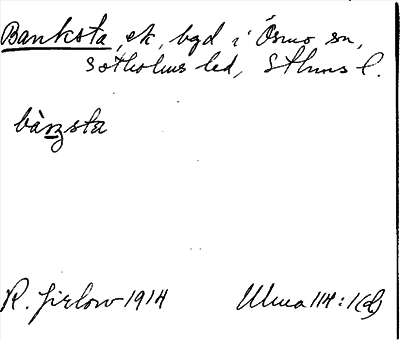 Banksta, ek, bgd i Ösmo sn,
Sotholms hd, Sthms l.
bàŋsta
R. Jirlow 1914
Ulma 114:1(d)